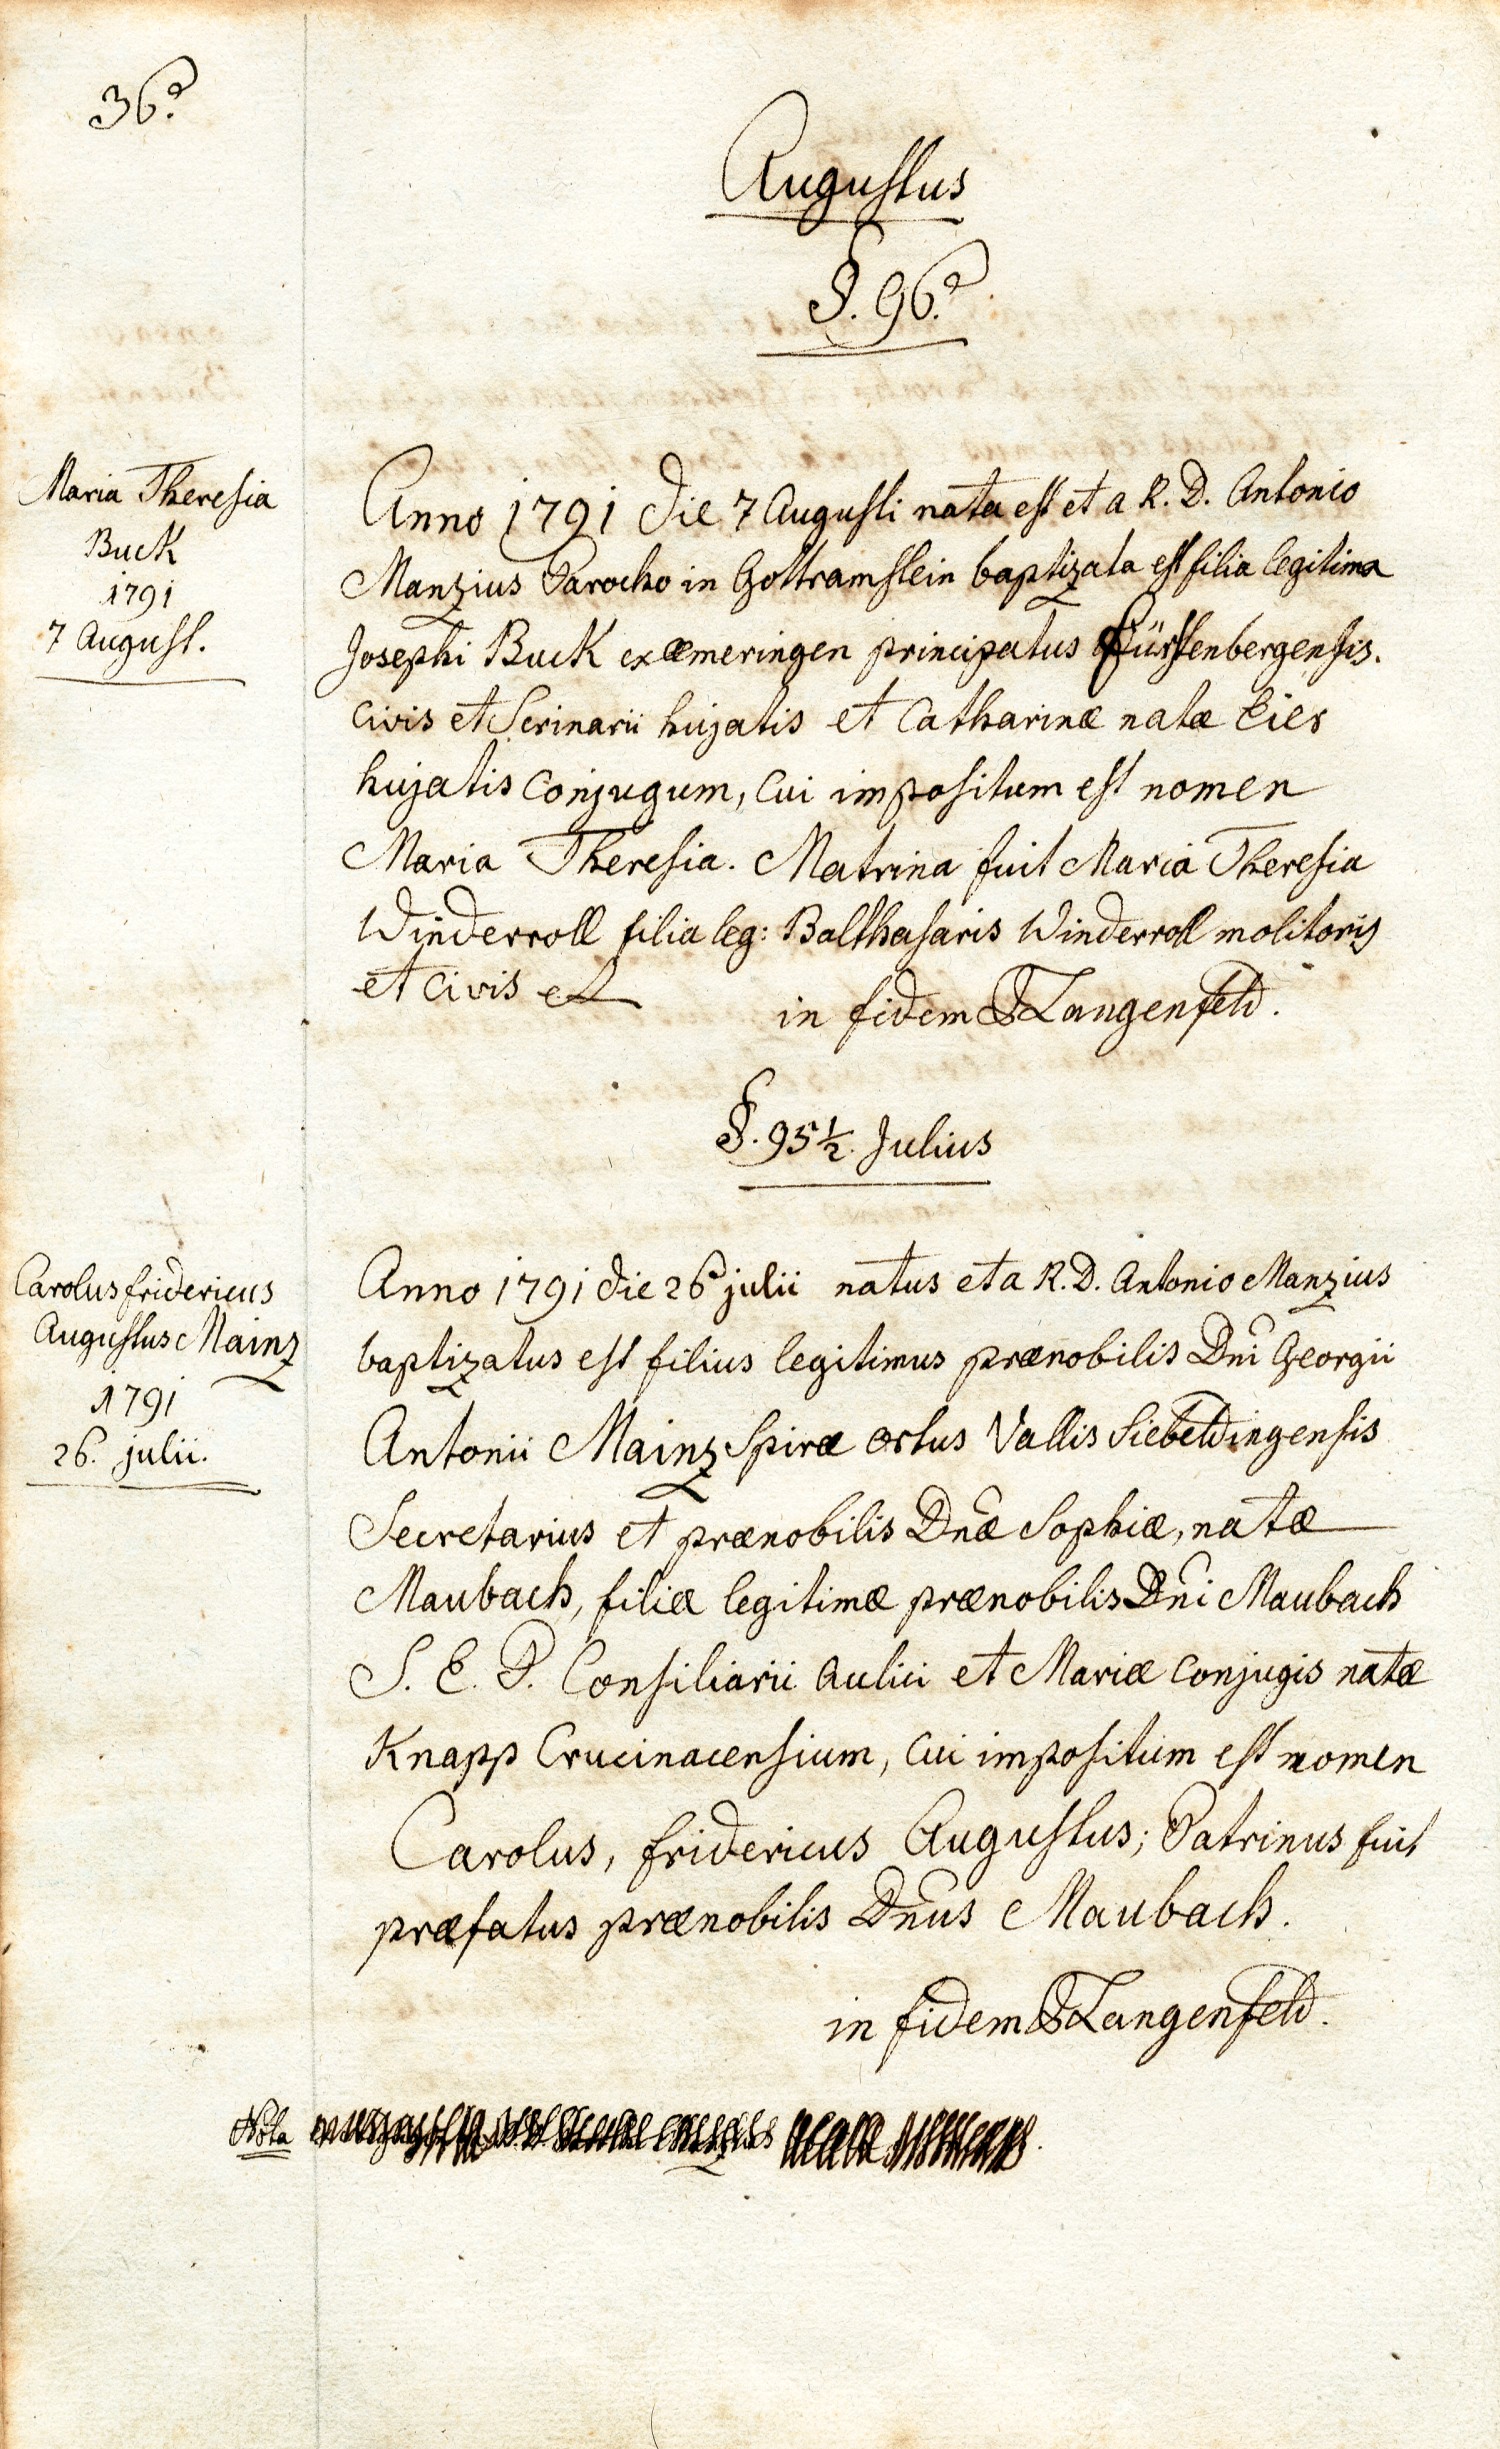 36.
Augustus
§. 96.
Maria Theresia
Buck
1791
7 August.
Anno 1791 die 7 Augusti nata est et a R. D. Antonio
Manzius Parocho in Gottramstein baptizata est filia legitima
Josephi Buck ex æmeringen principatus Fürstenbergensis.
civis et Scrinarii hujatis et Catharinæ natæ Eier
hujatis Conjugum, Cui impositum est nomen
Maria Theresia. Matrina fuit Maria Theresia
Winderroll filia leg: Balthasaris Winderroll molitoris
et Civis
in fidem Langenfeld.
§. 95 1/2. Julius
Carolus fridericus
Augustus Mainz
1791
26. julii.
Anno 1791 die 26 julii natus et a R. D. Antonio Manzius
baptizatus est filius legitimus prænobilis Dni Georgii
Antonii Mainz Spiræ ortus Vallis Siebeldingensis
Secretarius et prænobilis Dnæ Sophiæ, natæ
Maubach, filiæ legitimæ prænobilis Dni Maubach
S. E. P. Consiliarii Aulici et Mariæ Conjugis natæ
Knapp Crucinacensium, Cui impositum est nomen
Carolus, fridericus Augustus; Patrinus fuit
præfatus prænobilis Dnus Maubach.
in fidem Langenfeld.
Nota